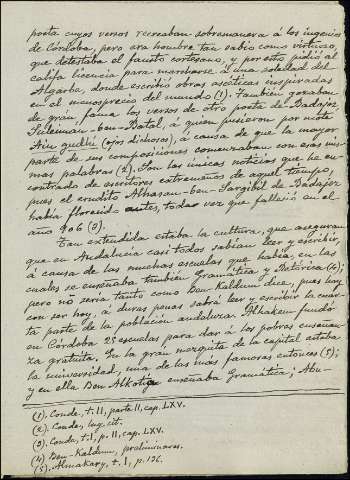 poeta cuyos versos recreaban sobremanera á los ingenios
de Córdoba, pero era hombre tan sabio como virtuoso,
que detestaba el fausto cortesano, y por esto pidió al
califa licencia para marcharse á una soledad del
Algarbe, donde escribió obras ascéticas inspiradas
en el menosprecio del mundo (1). También gozaban
de gran fama los versos de otro poeta de Badajoz,
Suleiman-ben-Batal, á quien pusieron por mote
Ain gudhi (ojos dichosos), á causa de que la mayor
parte de sus composiciones comenzaban con esas mis-
mas palabras (2). Son las únicas noticias que he en-
contrado de escritores extremeños de aquel tiempo,
pues el erudito Alhasan-ben-Sargibil de Badajoz
había florecido antes, toda vez que falleció en el
año 906 (3).
Tan extendida estaba la cultura, que aseguran
que en Andalucía casi todos sabían leer y escribir,
á causa de las muchas escuelas que había, en las
cuales se enseñaba también Gramática y Retórica (4);
pero no sería tanto como Ben-Kaldum dice, pues hoy
con ser hoy, á duras penas sabrá leer y escribir la cuar-
ta parte de la población andaluza. Alhakem fundó
en Córdoba 25 escuelas para dar á los pobres enseñan-
za gratuita. En la gran mezquita de la capital estaba
la universidad, una de las más famosas entonces (5);
y en ella Ben-Alkotiya enseñaba Gramática; Abu-
(1). Conde, t. II, parte II, cap. LXV.
(2). Conde, lug. cit.
(3). Conde, t. I, p. II, cap. LXV.
(4). Ben-Kaldum, preliminares.
(5). Almakary, t. I, p. 136.